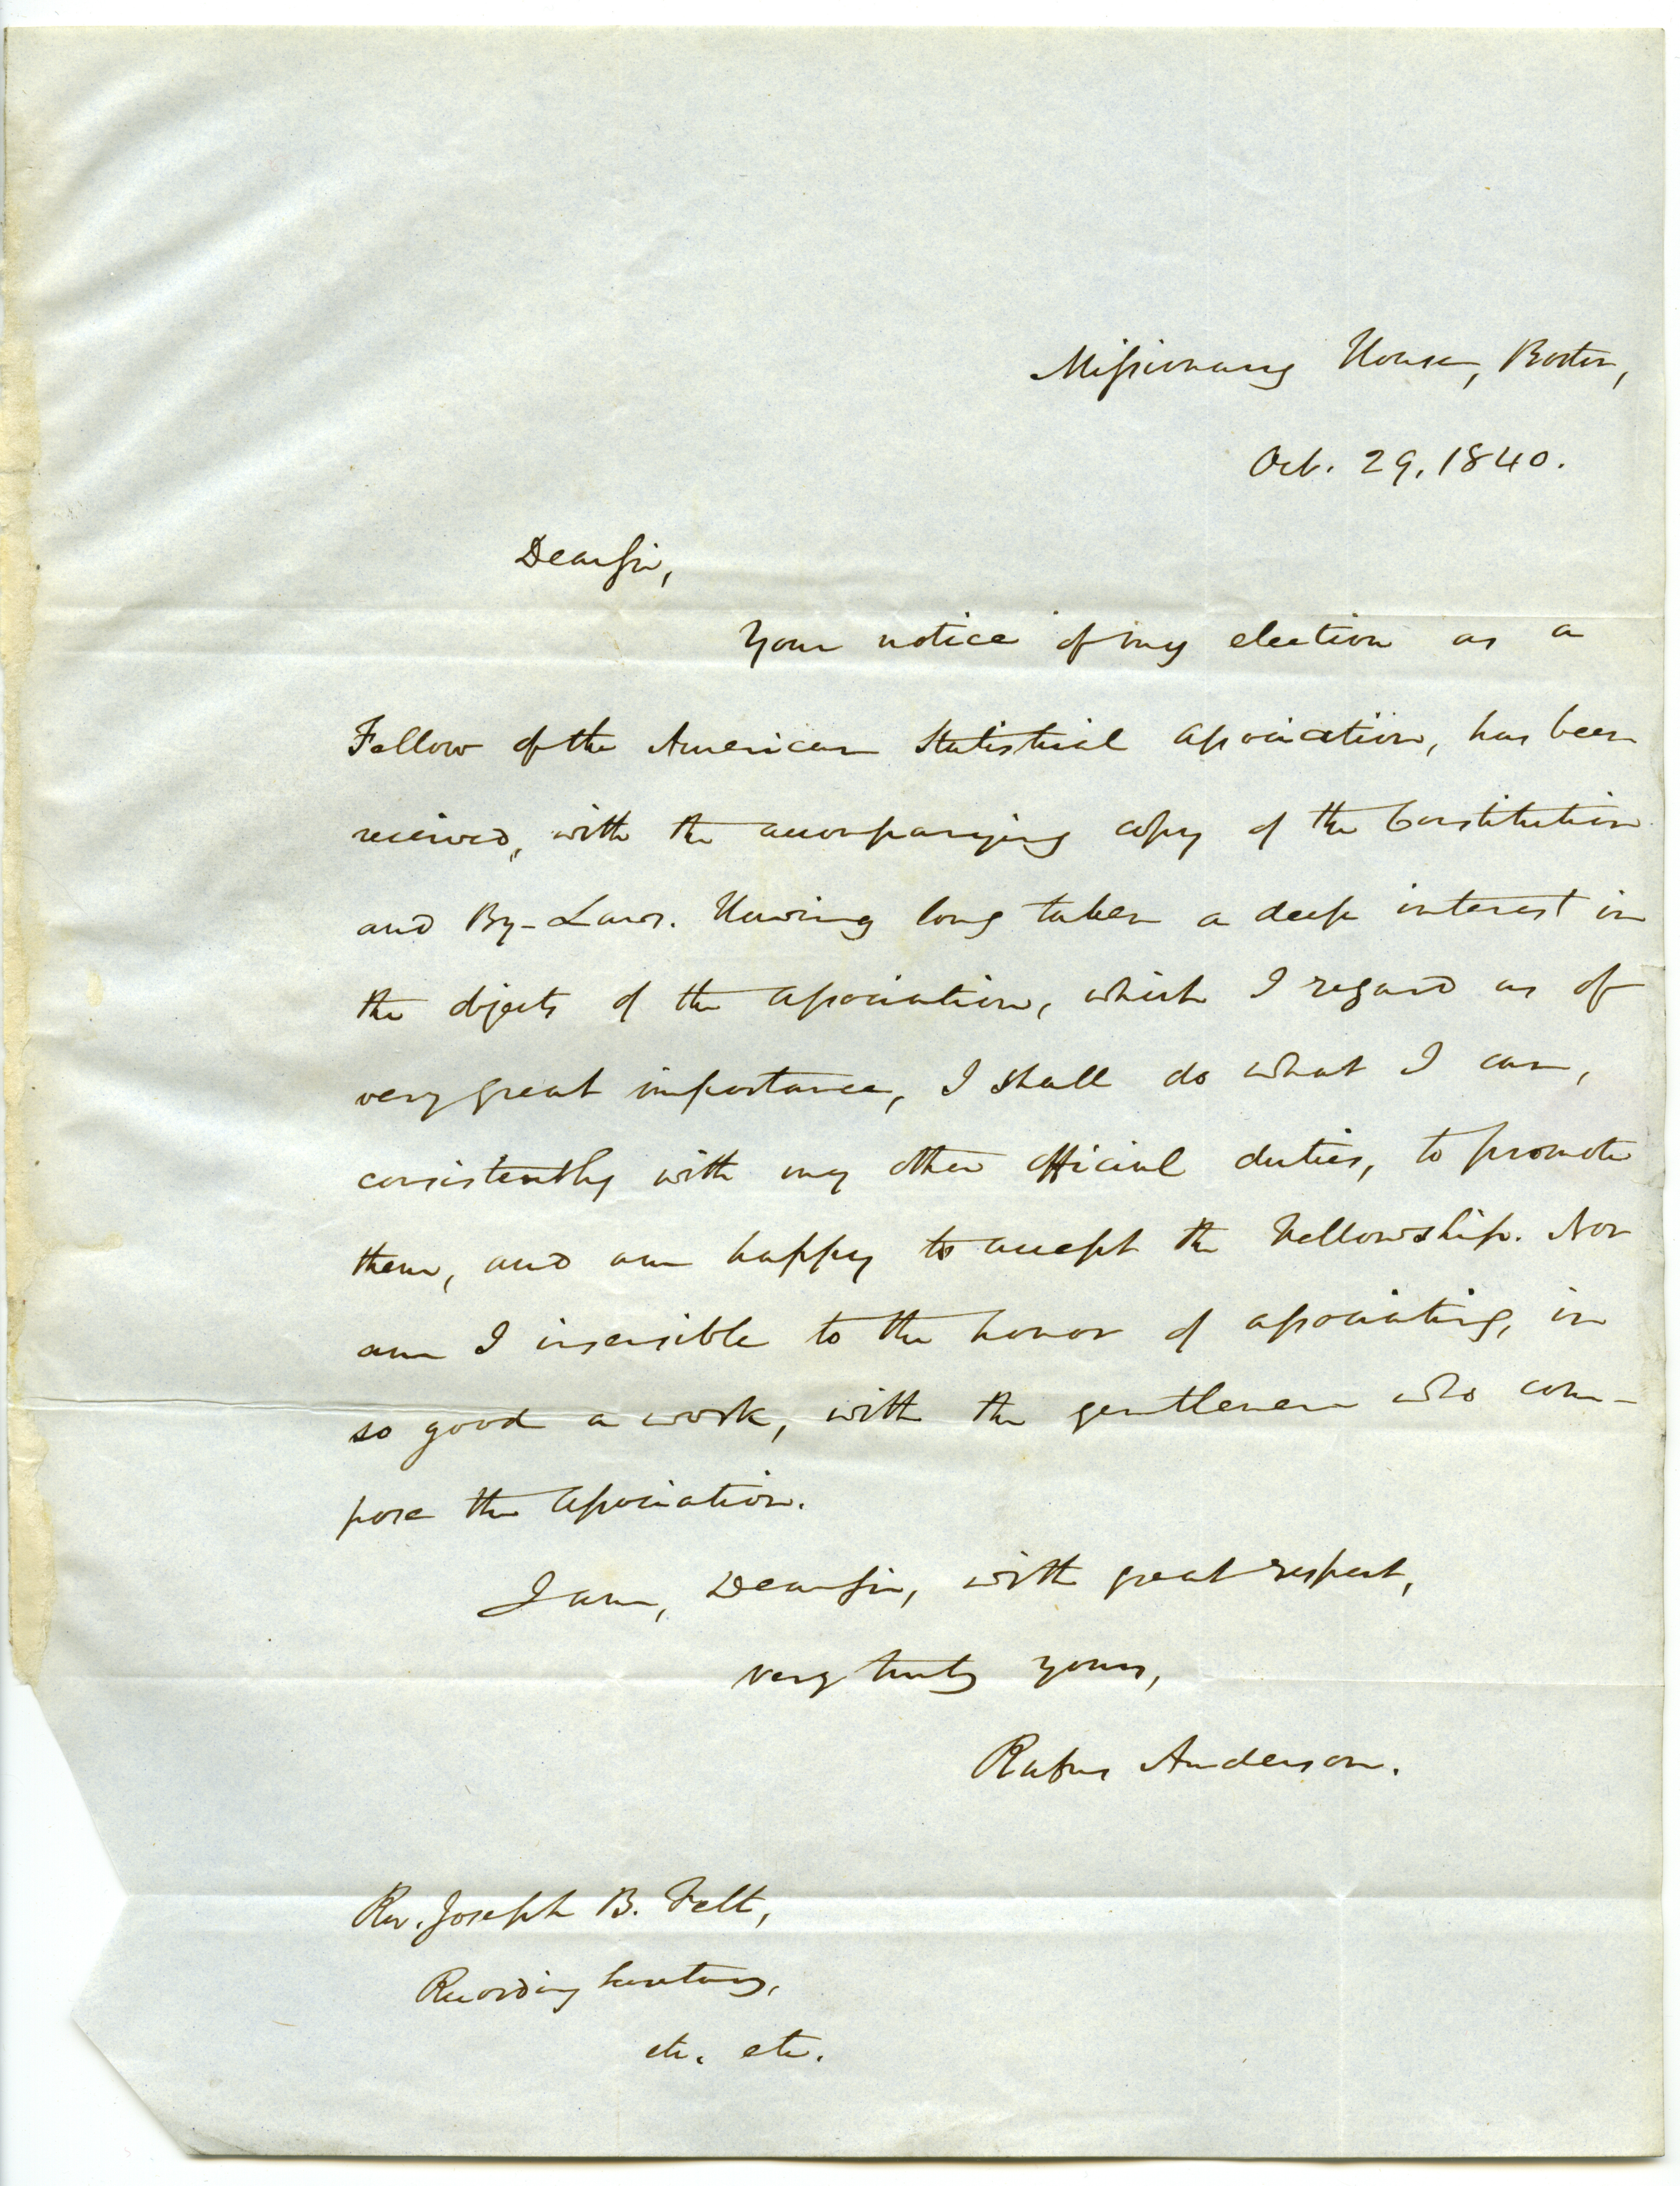 Missionary House, Boston,
Oct. 29, 1840.
Dear Sir,
Your notice of my election as a
Fellow of the American Statistical Association, has been
received, with the accompanying copy of the Constitution
and By-Laws. Having long taken a deep interest in
the objects of the Association, which I regard as of
very great importance, I shall do what I can,
consistently with my other official duties, to promote
them, and am happy to accept the Fellowship. Nor
am I insensible to the honor of associating, in
so good a work, with the gentlemen who com-
pose the Association.
I am, Dear Sir, with great respect,
very truly yours,
Rufus Anderson.
Rev. Joseph B. Felt,
Recording Secretary,
etc. etc.